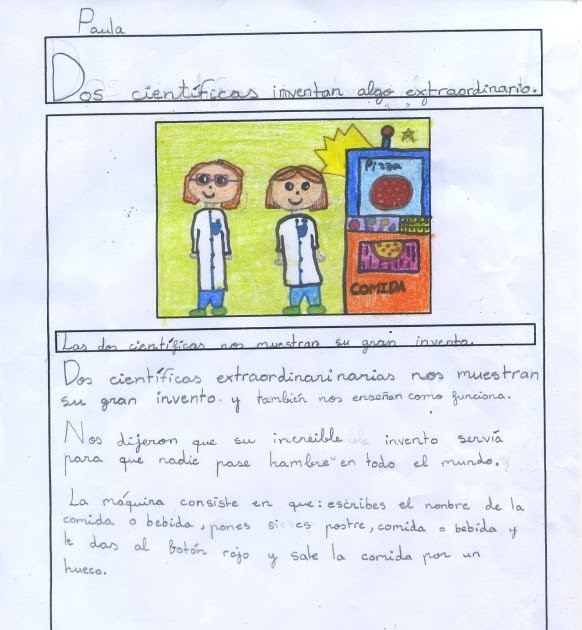 Paula
Dos científicas inventan algo extraordinario.
Pizza
COMIDA
Las dos científicas nos muestran su gran invento.
Dos científicas extraordinarinarias nos muestran
su gran invento. y también nos enseñan como funciona.
Nos dijeron que su increible invento servía
para que nadie pase hambre en todo el mundo.
La máquina consiste en que: escribes el nonbre de la
comida o bebida, pones si es postre, comida o bebida y
le das al botón rojo y sale la comida por un
hueco.